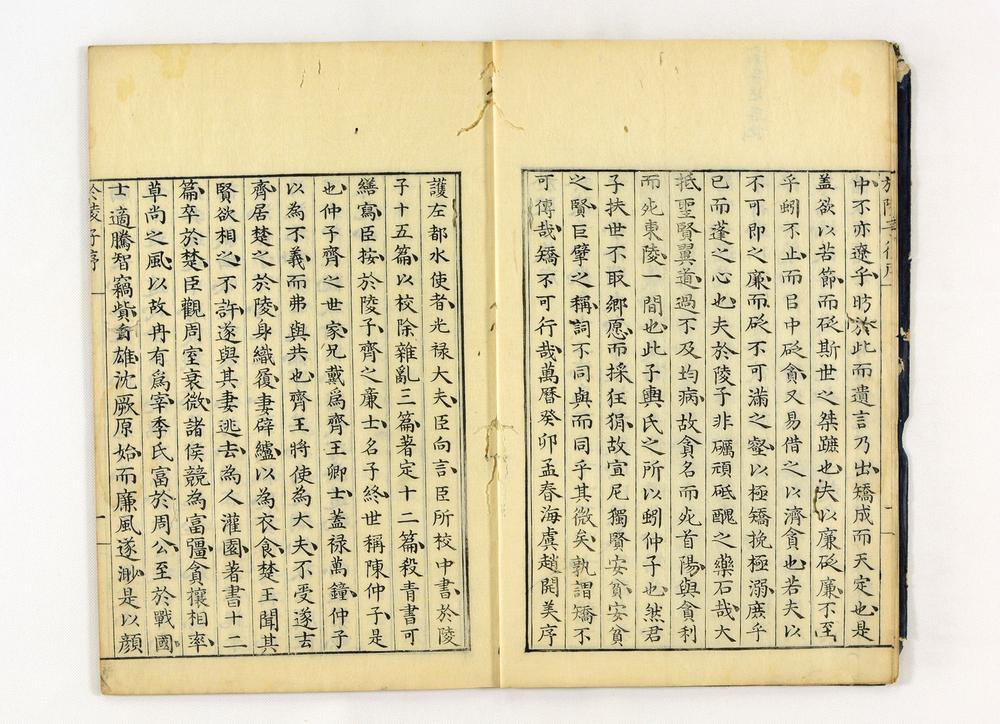 中不亦遼乎昉於此而遺言乃出矯成而天定也是
蓋欲以苦節而砭斯世之桀蹠也夫以廉砭廉不至
乎蚓不止而呂中砭貪又易借之以濟貪也若夫以
不可即之廉而砭不可滿之壑以極矯挽極溺庶乎
已而蓬之心也夫於陵子非礪頑砥醜之藥石哉大
抵聖賢翼道過不及均病故貪名而死首陽與貪利
而死東陵一間也此子輿氏之所以蚓仲子也然君
子扶世不取鄉愿而採狂狷故宣尼獨賢安貧安貧
之賢巨擘之稱詞不同與而同乎其微矣孰謂矯不
可傳哉矯不可行哉萬曆癸卯孟春海虞趙開美序
護左都水使者光祿大夫臣向言臣所校中書於陵
子十五篇以校除雜亂三篇著定十二篇殺青書可
繕寫臣按於陵子齊之廉士名子終世稱陳仲子是
也仲子齊之世家兄戴為齊王卿士蓋祿萬鐘仲子
以為不義而弗與共也齊王將使為大夫不受遂去
齊居楚之於陵身織屨妻辟纑以為衣食楚王聞其
賢欲相之不許遂與其妻逃去為人灌園著書十二
篇卒於楚臣觀周室衰微諸侯競為富彊貪攘相率
草尚之風以故冉有為宰季氏富於周公至於戰國
士適騰智竊紫奮雄沈厥原始而廉風遂渺是以顏
於陵子序
一